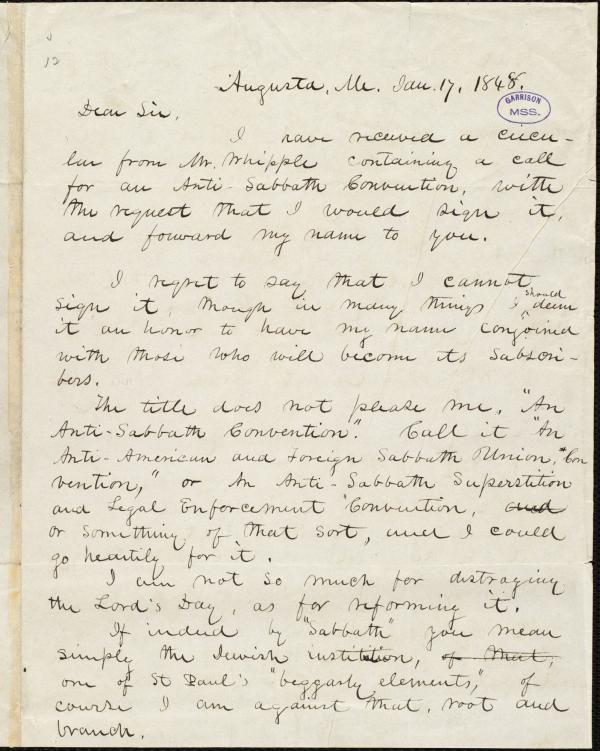 12
Augusta, Me. Jan. 17, 1848.
GARRISON
MSS.
Dear Sir,
I have received a circu-
lar from Mr. Whipple containing a call
for an Anti-Sabbath Convention, with
the request that I would sign it,
and forward my name to you.
I regret to say that I cannot
sign it, though in many things I should deem
it an honor to have my name conjoined
with those who will become its Subscri-
bers.
The title does not please me, "An
Anti-Sabbath Convention". Call it "An
Anti-American and Foreign Sabbath Union, "Con
vention," or An Anti-Sabbath Superstition
and Legal Enforcement Convention, and
or something of that sort, and I could
go heartily for it.
I am not so much for distroying
the Lord's Day, as for reforming it.
If indeed by "Sabbath" you mean
simply the Jewish institution, of that,
one of St Paul's "beggarly elements," of
course I am against that, root and
branch.